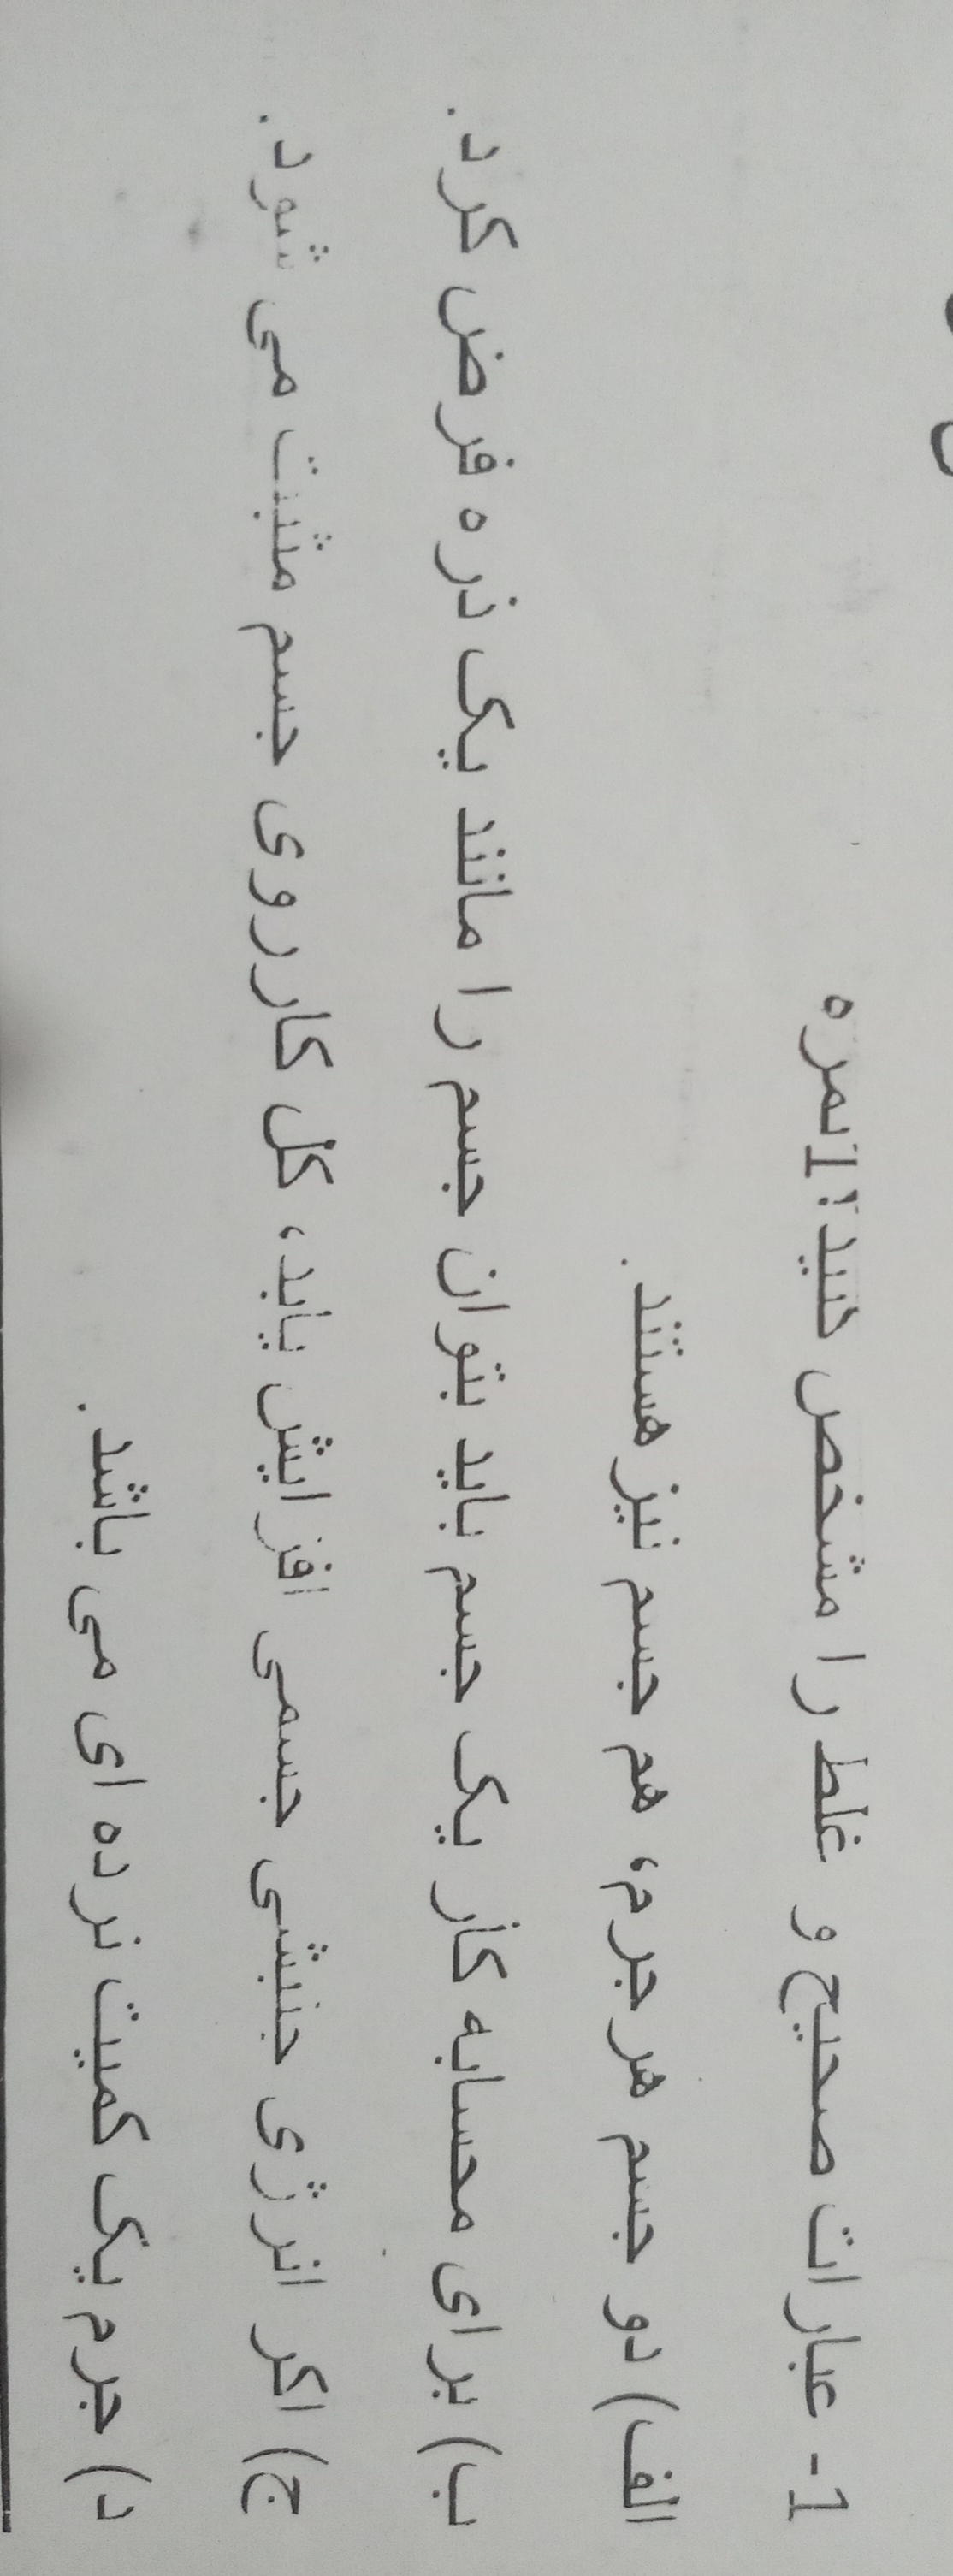 1- عبارات صحیح و غلط را مشخص کنید؟1نمره
الف) دو جسم هر جرم، هم جسم نیز هستند.
ب) برای محسابه کار یک جسم باید بتوان جسم را مانند یک ذره فرض کرد.
ج) اگر انرژی جنبشی جسمی افزایش یابد، کل کار روی جسم مثبت می شود.
د) جرم یک کمیت نرده ای می باشد.